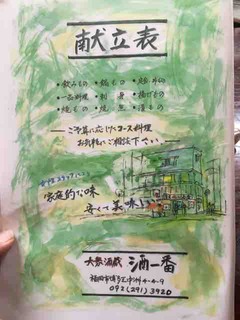 献立表
・飲みもの ・鍋もの
・一品料理 ・刺身 ・揚げもの
・焼もの ・焼魚 ・漬もの
ご予算に応じたコース料理
お気軽にご相談下さい。
家庭的な味
安くて美味い
大衆酒蔵 酒一番
福岡市博多区中洲4-4-9
092(291)3920